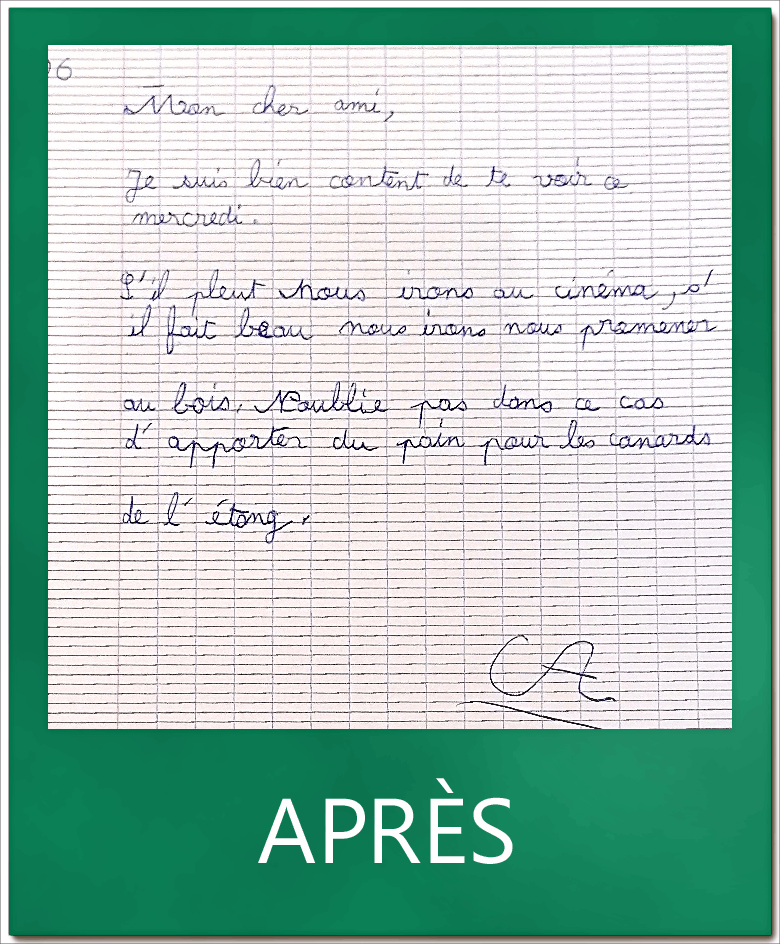 96
Mon cher ami,
Je suis bien content de te voir ce
mercredi.
S'il pleut nous irons au cinéma, s'
il fait beau nous irons nous promener
au bois. N'oublie pas dans ce cas
d'apporter du pain pour les canards
de l'étang.
APRÈS